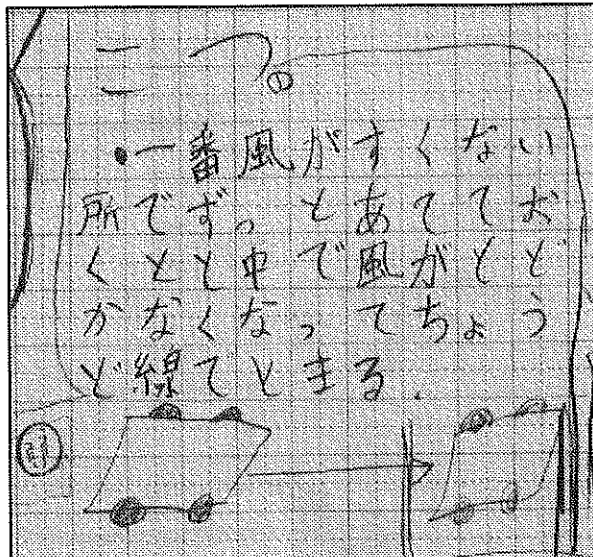 こつの
・一番風がすくない
所でずっとあててお
くとと中で風がとど
かなくなってちょう
ど線でとまる.